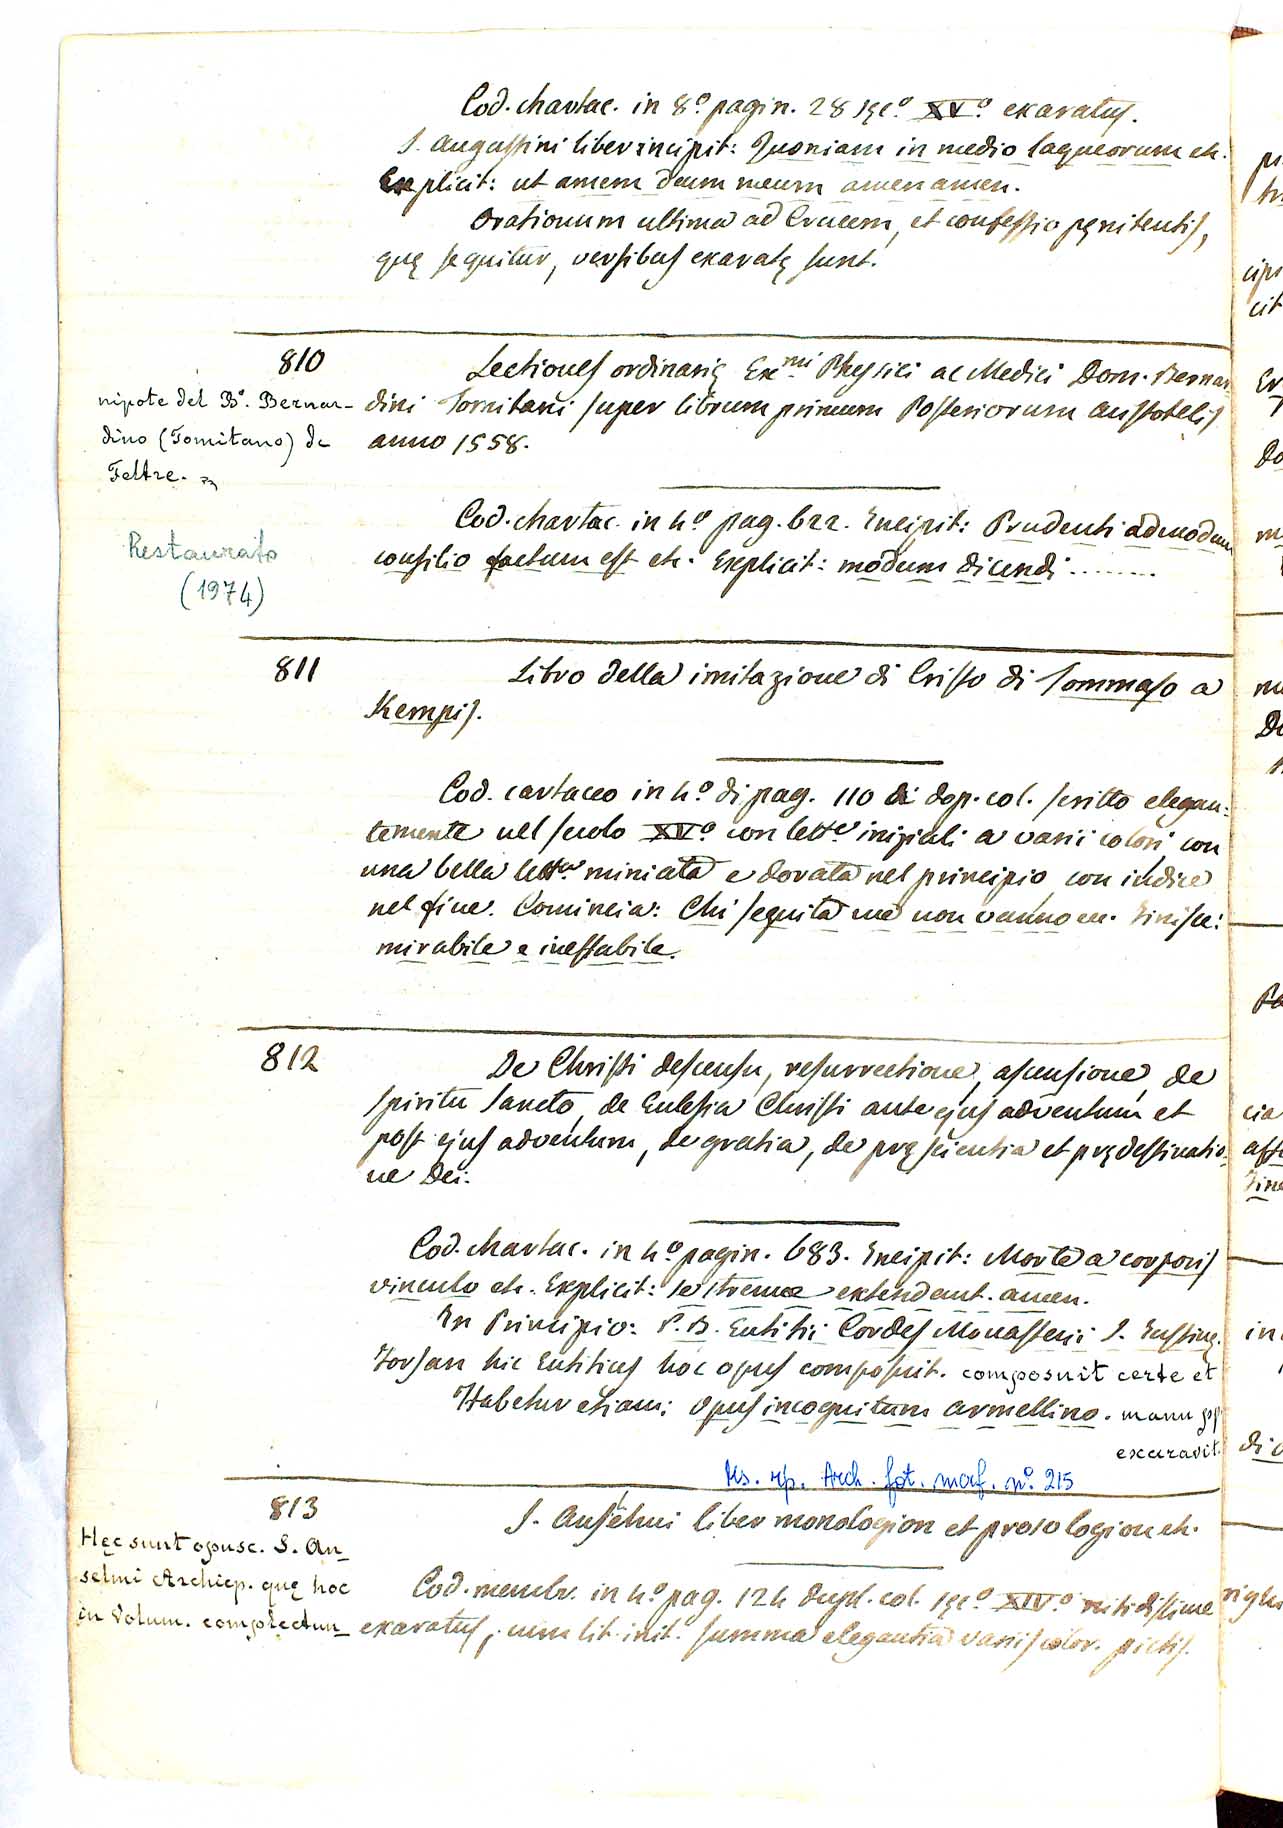 Cod. chartac. in 8.º pagin. 28 sęc.º XV.º exaratus.
S. Augustini liber incipit: Quoniam in medio laqueorum etc.
Explicit: ut amem deum meum amen amen.
Orationum ultima ad Crucem, et confessio pęnitentis,
quę sequitur, versibus exaratę sunt.
810
Lectiones ordinarię Exmi Physici ac Medici Dom. Bernar-
dini Tomitani super librum primum Posteriorum Aristotelis
anno 1558.
nipote del Bº. Bernar-
dino (Tomitano) da
Feltre.
Cod. chartac. in 4º pag. 622. Incipit: Prudenti admodum
consilio factum est etc. Explicit: modum dicendi ........
Restaurato
(1974)
811
Libro della imitazione di Cristo di Tommaso a
Kempis.
Cod. cartaceo in 4º. di pag. 110 di dop. col. scritto elegan-
temente nel secolo XV.º con lett.e iniziali a varii colori con
una bella lett.a miniata e dorata nel principio con indice
nel fine. Comincia: Chi sequita me non vanno ec. Finisce:
mirabile e ineffabile.
812
De Christi descensu, resurrectione, ascensione, de
Spiritu Sancto, de Eclesia Christi ante ejus adventum et
post ejus adventum, de gratia, de pręscientia et prędestinatio-
ne Dei.
Cod. chartac. in 4º pagin. 683. Incipit: Morte a corporis
vinculo etc. Explicit: se strenue extendant. amen.
In Principio: P. D. Eutitii Cordes Monasterii S. Justinę.
Forsan hic Eutitius hoc opus composuit. composuit certe et
Habetur etiam: Opus incognitum Armellino. manu
exaravit.
Ms. rip. Arch. fot. marf. nº. 215
813
S. Anselmi liber monologion et prosologion etc.
Hęc sunt opusc. S. An-
selmi Archiep. quę hoc
in volum. complectun-
Cod. membr. in 4º pag. 124 dupl. col. sęc.º XIV.º nitidissime
exaratus, cum lit. init. summa elegantia variis color. pictis.